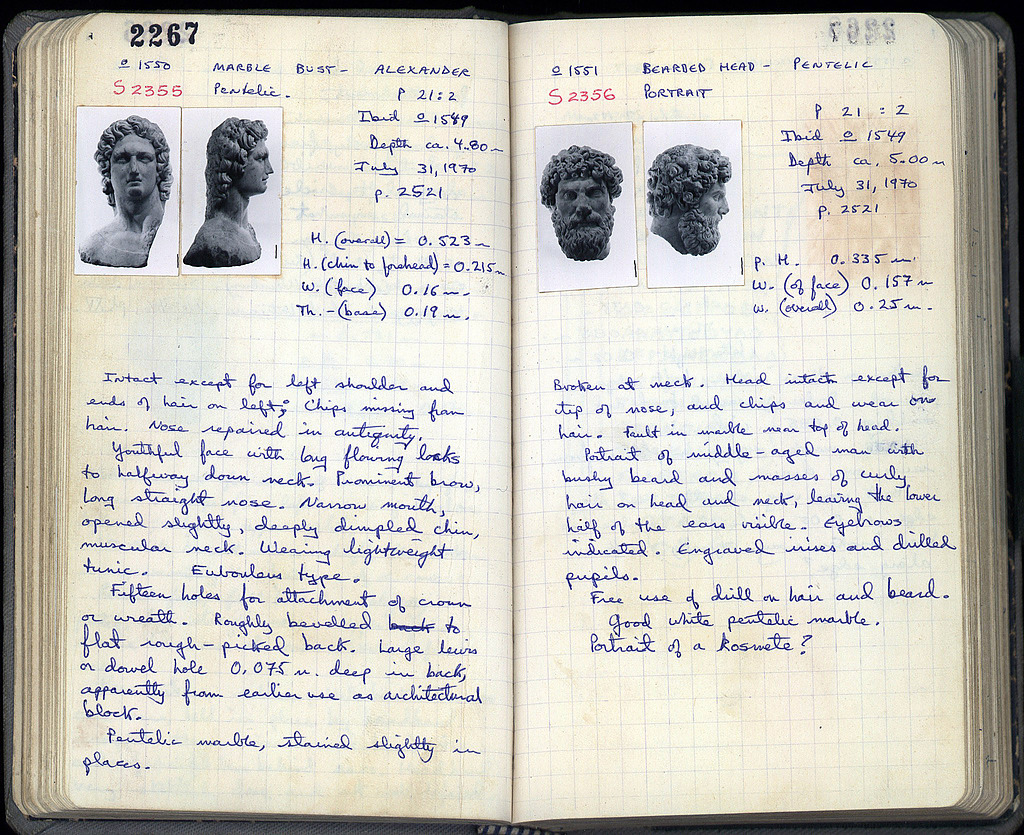 2267
o 1550 MARBLE BUST - ALEXANDER
S 2355 Pentelic.
P 21 : 2
Ibid o 1549
Depth ca. 4.80 m
July 31, 1970
p. 2521
H. (overall) = 0.523 m
H. (chin to forehead) = 0.215 m
W. (face) 0.16 m.
Th. - (base) 0.19 m.
Intact except for left shoulder and
ends of hair on left; Chips missing from
hair. Nose repaired in antiquity.
Youthful face with long flowing locks
to halfway down neck. Prominent brow,
long straight nose. Narrow mouth,
opened slightly, deeply dimpled chin,
muscular neck. Wearing lightweight
tunic. Eubouleus type.
Fifteen holes for attachment of crown
or wreath. Roughly bevelled back to
flat rough-picked back. Large lewis
or dowel hole 0.075 m. deep in back,
apparently from earlier use as architectural
block.
Pentelic marble, stained slightly in
places.
2267
o 1551 BEARDED HEAD - PENTELIC
S 2356 PORTRAIT
P 21 : 2
Ibid o 1549
Depth ca. 5.00 m
July 31, 1970
p. 2521
p. H. 0.335 m.
W. (of face) 0.157 m
W. (overall) 0.25 m.
Broken at neck. Head intact except for
tip of nose, and chips and wear on
hair. Fault in marble near top of head.
Portrait of middle-aged man with
bushy beard and masses of curly
hair on head and neck, leaving the lower
half of the ears visible. Eyebrows
indicated. Engraved irises and drilled
pupils.
Free use of drill on hair and beard.
Good white pentelic marble.
Portrait of a kosmete?